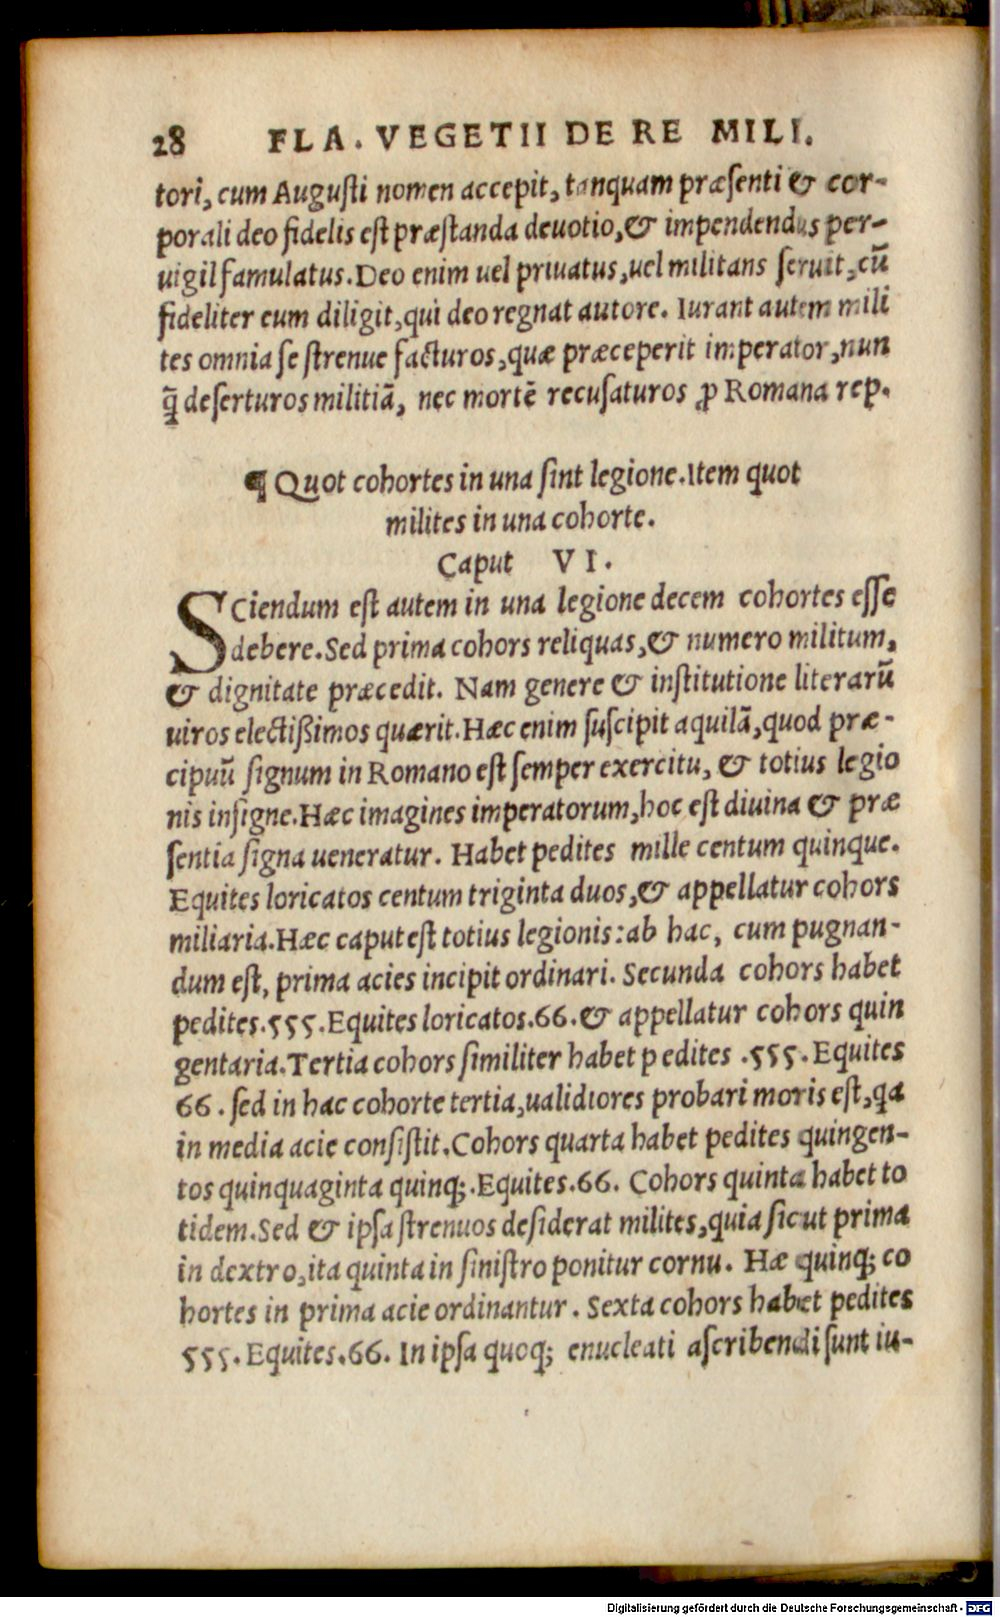 28 FLA. VEGETII DE RE MILI.
tori, cum Augusti nomen accepit, tanquam præsenti & cor-
porali deo fidelis est præstanda deuotio, & impendendus per-
uigil famulatus. Deo enim uel priuatus, uel militans seruit, cū
fideliter eum diligit, qui deo regnat autore. Iurant autem mili
tes omnia se strenue facturos, quæ præceperit imperator, nun
q̃ deserturos militiā, nec mortē recusaturos ꝓ Romana rep.
¶ Quot cohortes in una sint legione. Item quot
milites in una cohorte.
Caput VI.
SCiendum est autem in una legione decem cohortes esse
debere. Sed prima cohors reliquas, & numero militum,
& dignitate præcedit. Nam genere & institutione literarū
uiros electißimos quærit. Hæc enim suscipit aquilā, quod præ-
cipuū signum in Romano est semper exercitu, & totius legio
nis insigne. Hæc imagines imperatorum, hoc est diuina & præ
sentia signa ueneratur. Habet pedites mille centum quinque.
Equites loricatos centum triginta duos, & appellatur cohors
miliaria. Hæc caput est totius legionis: ab hac, cum pugnan-
dum est, prima acies incipit ordinari. Secunda cohors habet
pedites. 555. Equites loricatos. 66. & appellatur cohors quin
gentaria. Tertia cohors similiter habet pedites . 555. Equites
66. sed in hac cohorte tertia, ualidiores probari moris est, qa
in media acie consistit. Cohors quarta habet pedites quingen-
tos quinquaginta quinq;. Equites. 66. Cohors quinta habet to
tidem. Sed & ipsa strenuos desiderat milites, quia sicut prima
in dextro, ita quinta in sinistro ponitur cornu. Hæ quinq; co
hortes in prima acie ordinantur. Sexta cohors habet pedites
555. Equites. 66. In ipsa quoq; enucleati ascribendi sunt iu-
Digitalisierung gefördert durch die Deutsche Forschungsgemeinschaft - DFG